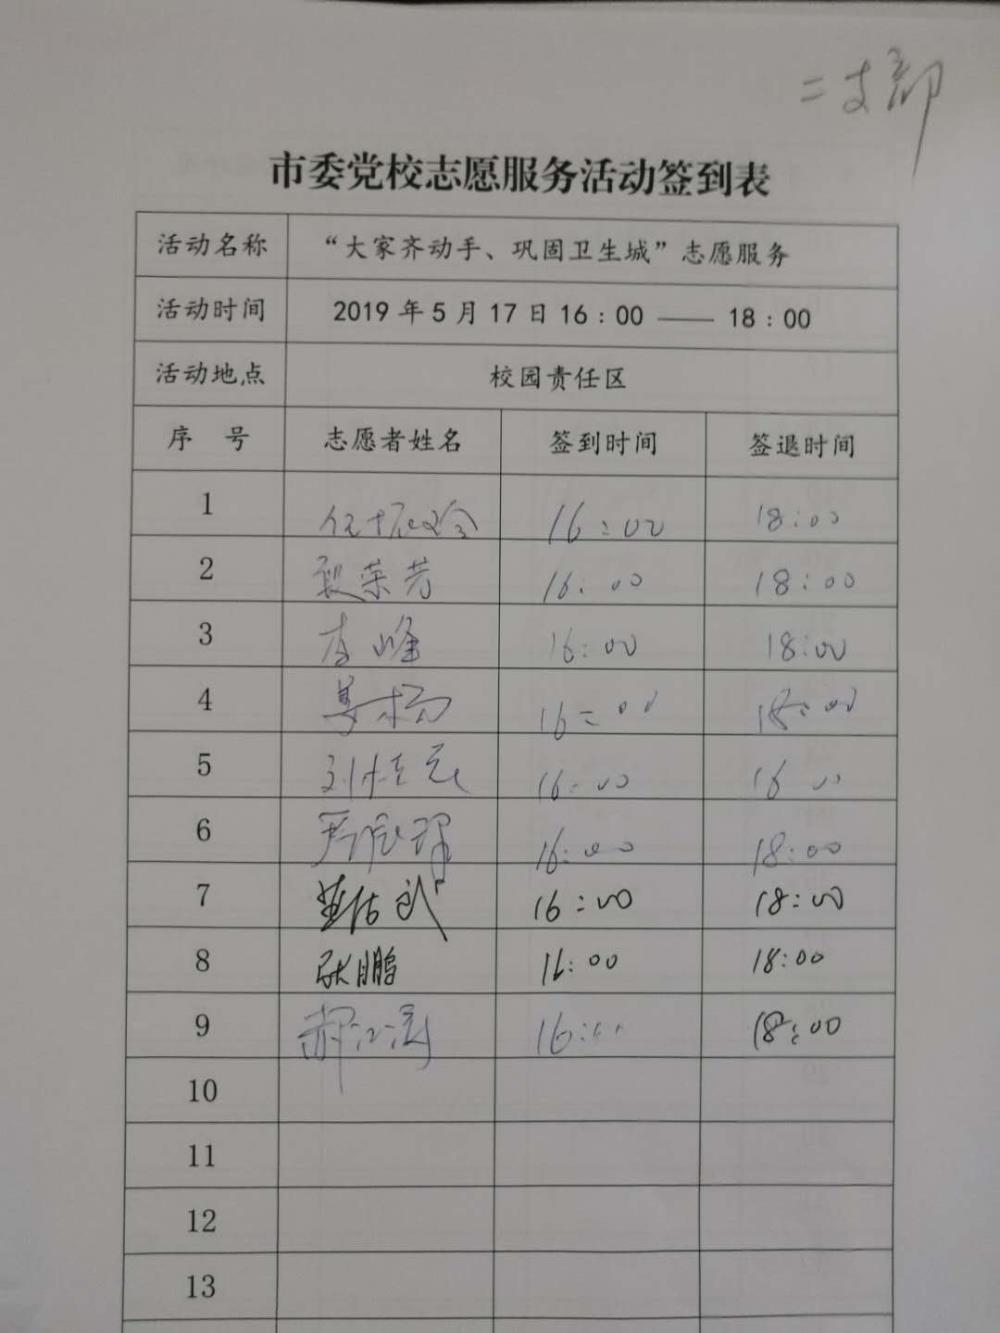 二支部
市委党校志愿服务活动签到表
活动名称 “大家齐动手、巩固卫生城”志愿服务
活动时间 2019 年 5 月 17 日 16：00 —— 18：00
活动地点 校园责任区
序 号 志愿者姓名 签到时间 签退时间
1 16:00 18:00
2 荣芳 16:00 18:00
3 李峰 16:00 18:00
4 姜杨 16:00 18:00
5 刘 16:00 16 00
6 严 16:00 18:00
7 16:00 18:00
8 张鹏 16:00 18:00
9 郝江涛 16:00 18:00
10
11
12
13